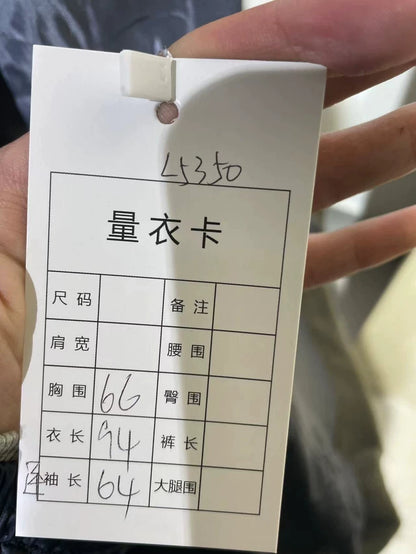 L5350
量衣卡
尺码 备注
肩宽 腰围
胸围 66 臀围
衣长 94 裤长
连袖长 64 大腿围